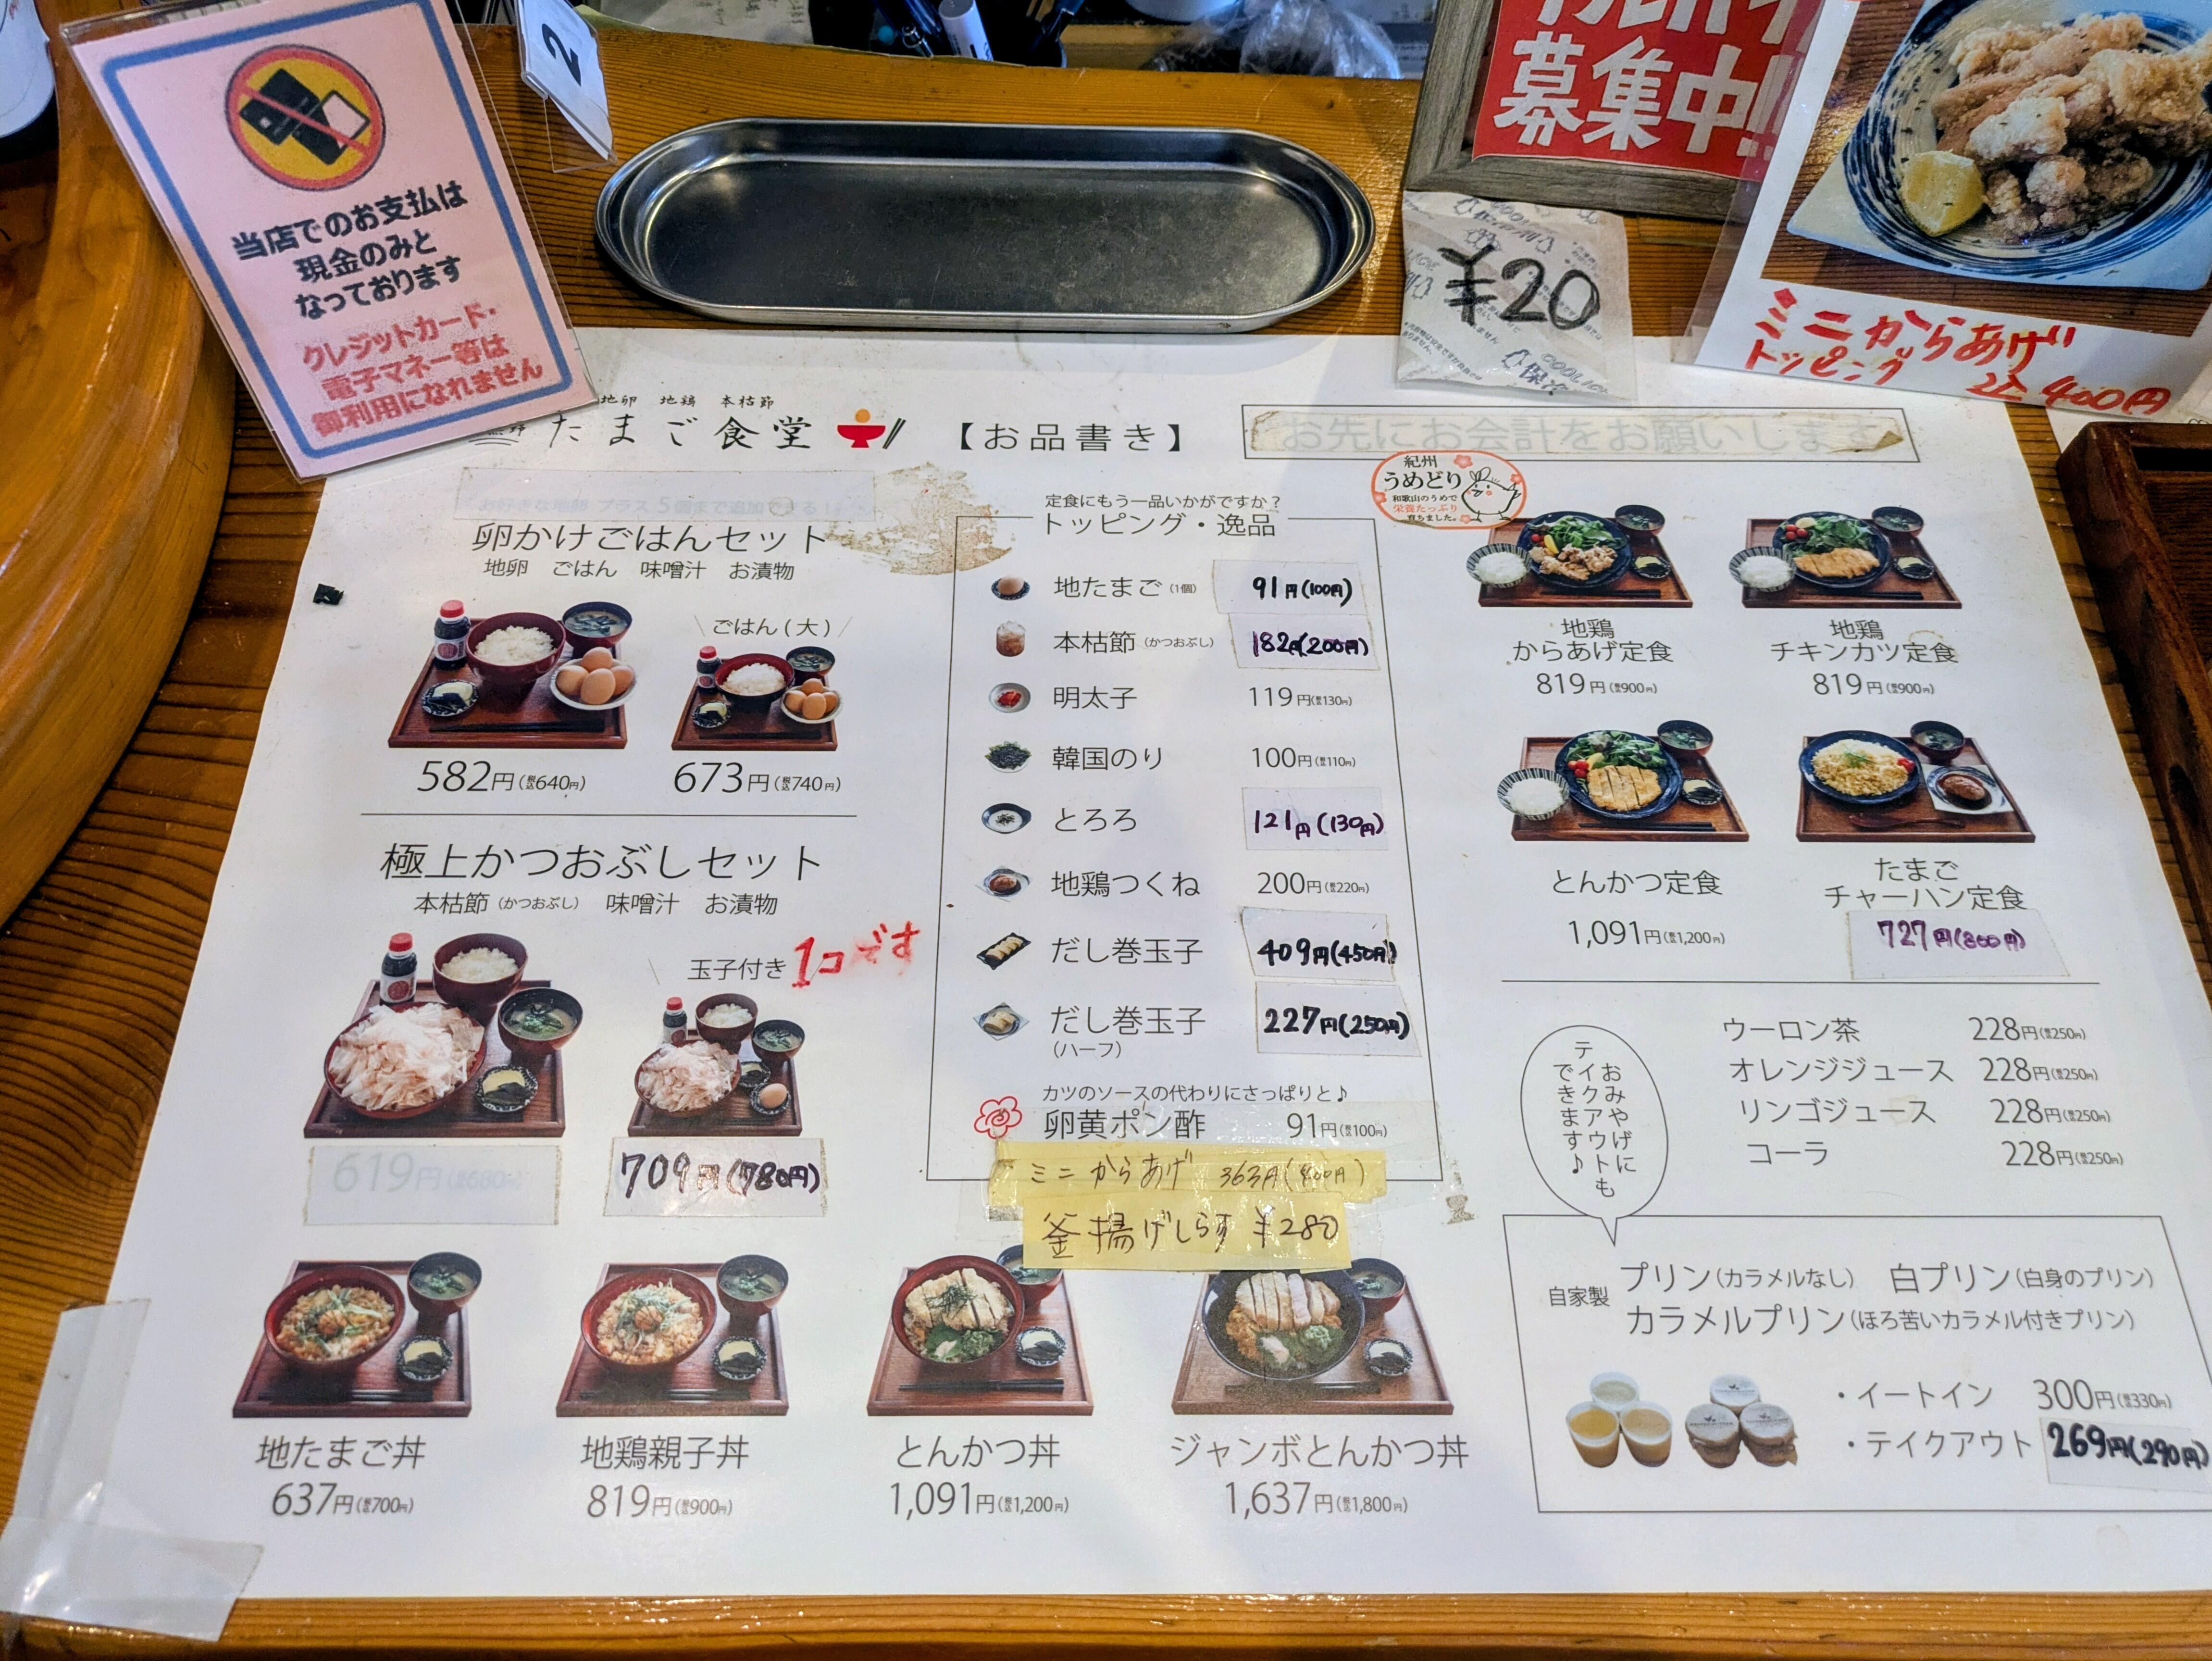 当店でのお支払は
現金のみと
なっております
クレジットカード・
電子マネー等は
御利用になれません
2
募集中!!
¥20
保冷
ミニからあげ
トッピング 込400円
地卵 地鶏 本枯節
たまご食堂
【お品書き】
お先にお会計をお願いします
お好きな地卵 プラス5個まで追加できる!
卵かけごはんセット
地卵 ごはん 味噌汁 お漬物
ごはん(大)
582円(税込640円)
673円(税込740円)
極上かつおぶしセット
本枯節(かつおぶし) 味噌汁 お漬物
玉子付き 1コです
619円(税込680円)
709円(780円)
定食にもう一品いかがですか?
トッピング・逸品
地たまご(1個) 91円(100円)
本枯節(かつおぶし) 182円(200円)
明太子 119円(税込130円)
韓国のり 100円(税込110円)
とろろ 121円(130円)
地鶏つくね 200円(税込220円)
だし巻玉子 409円(450円)
だし巻玉子 227円(250円)
(ハーフ)
カツのソースの代わりにさっぱりと♪
卵黄ポン酢 91円(税込100円)
ミニからあげ 363円(400円)
釜揚げしらす ¥280
紀州
うめどり
和歌山のうめで
栄養たっぷり
育ちました。
地鶏
からあげ定食
819円(税込900円)
地鶏
チキンカツ定食
819円(税込900円)
とんかつ定食
1,091円(税込1,200円)
たまご
チャーハン定食
727円(800円)
ウーロン茶 228円(税込250円)
オレンジジュース 228円(税込250円)
リンゴジュース 228円(税込250円)
コーラ 228円(税込250円)
おみやげに
テイクアウトも
できます♪
自家製 プリン(カラメルなし) 白プリン(白身のプリン)
カラメルプリン(ほろ苦いカラメル付きプリン)
・イートイン 300円(税込330円)
・テイクアウト 269円(290円)
地たまご丼
637円(税込700円)
地鶏親子丼
819円(税込900円)
とんかつ丼
1,091円(税込1,200円)
ジャンボとんかつ丼
1,637円(税込1,800円)